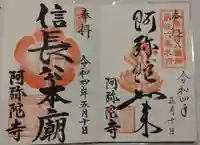 奉拝
令和四年五月十日
信長公本廟
阿弥陀寺
奉拝
令和四年
五月十日
阿弥陀如来
阿弥陀寺